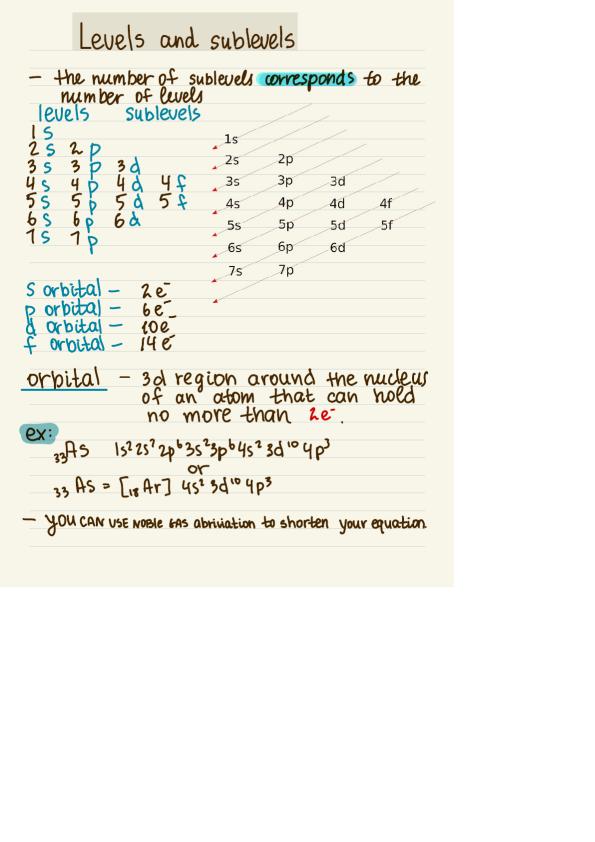 Levels and sublevels
- the number of sublevels corresponds to the
number of levels
levels sublevels
1s
2s 2p
3s 3p 3d
4s 4p 4d 4f
5s 5p 5d 5f
6s 6p 6d
7s 7p
1s
2s 2p
3s 3p 3d
4s 4p 4d 4f
5s 5p 5d 5f
6s 6p 6d
7s 7p
s orbital - 2e⁻
p orbital - 6e⁻
d orbital - 10e⁻
f orbital - 14e⁻
orbital - 3d region around the nucleus
of an atom that can hold
no more than 2e⁻.
ex:
₃₃As 1s² 2s² 2p⁶ 3s² 3p⁶ 4s² 3d¹⁰ 4p³
or
₃₃As = [₁₈Ar] 4s² 3d¹⁰ 4p³
- YOU CAN USE NOBLE GAS abriviation to shorten your equation.